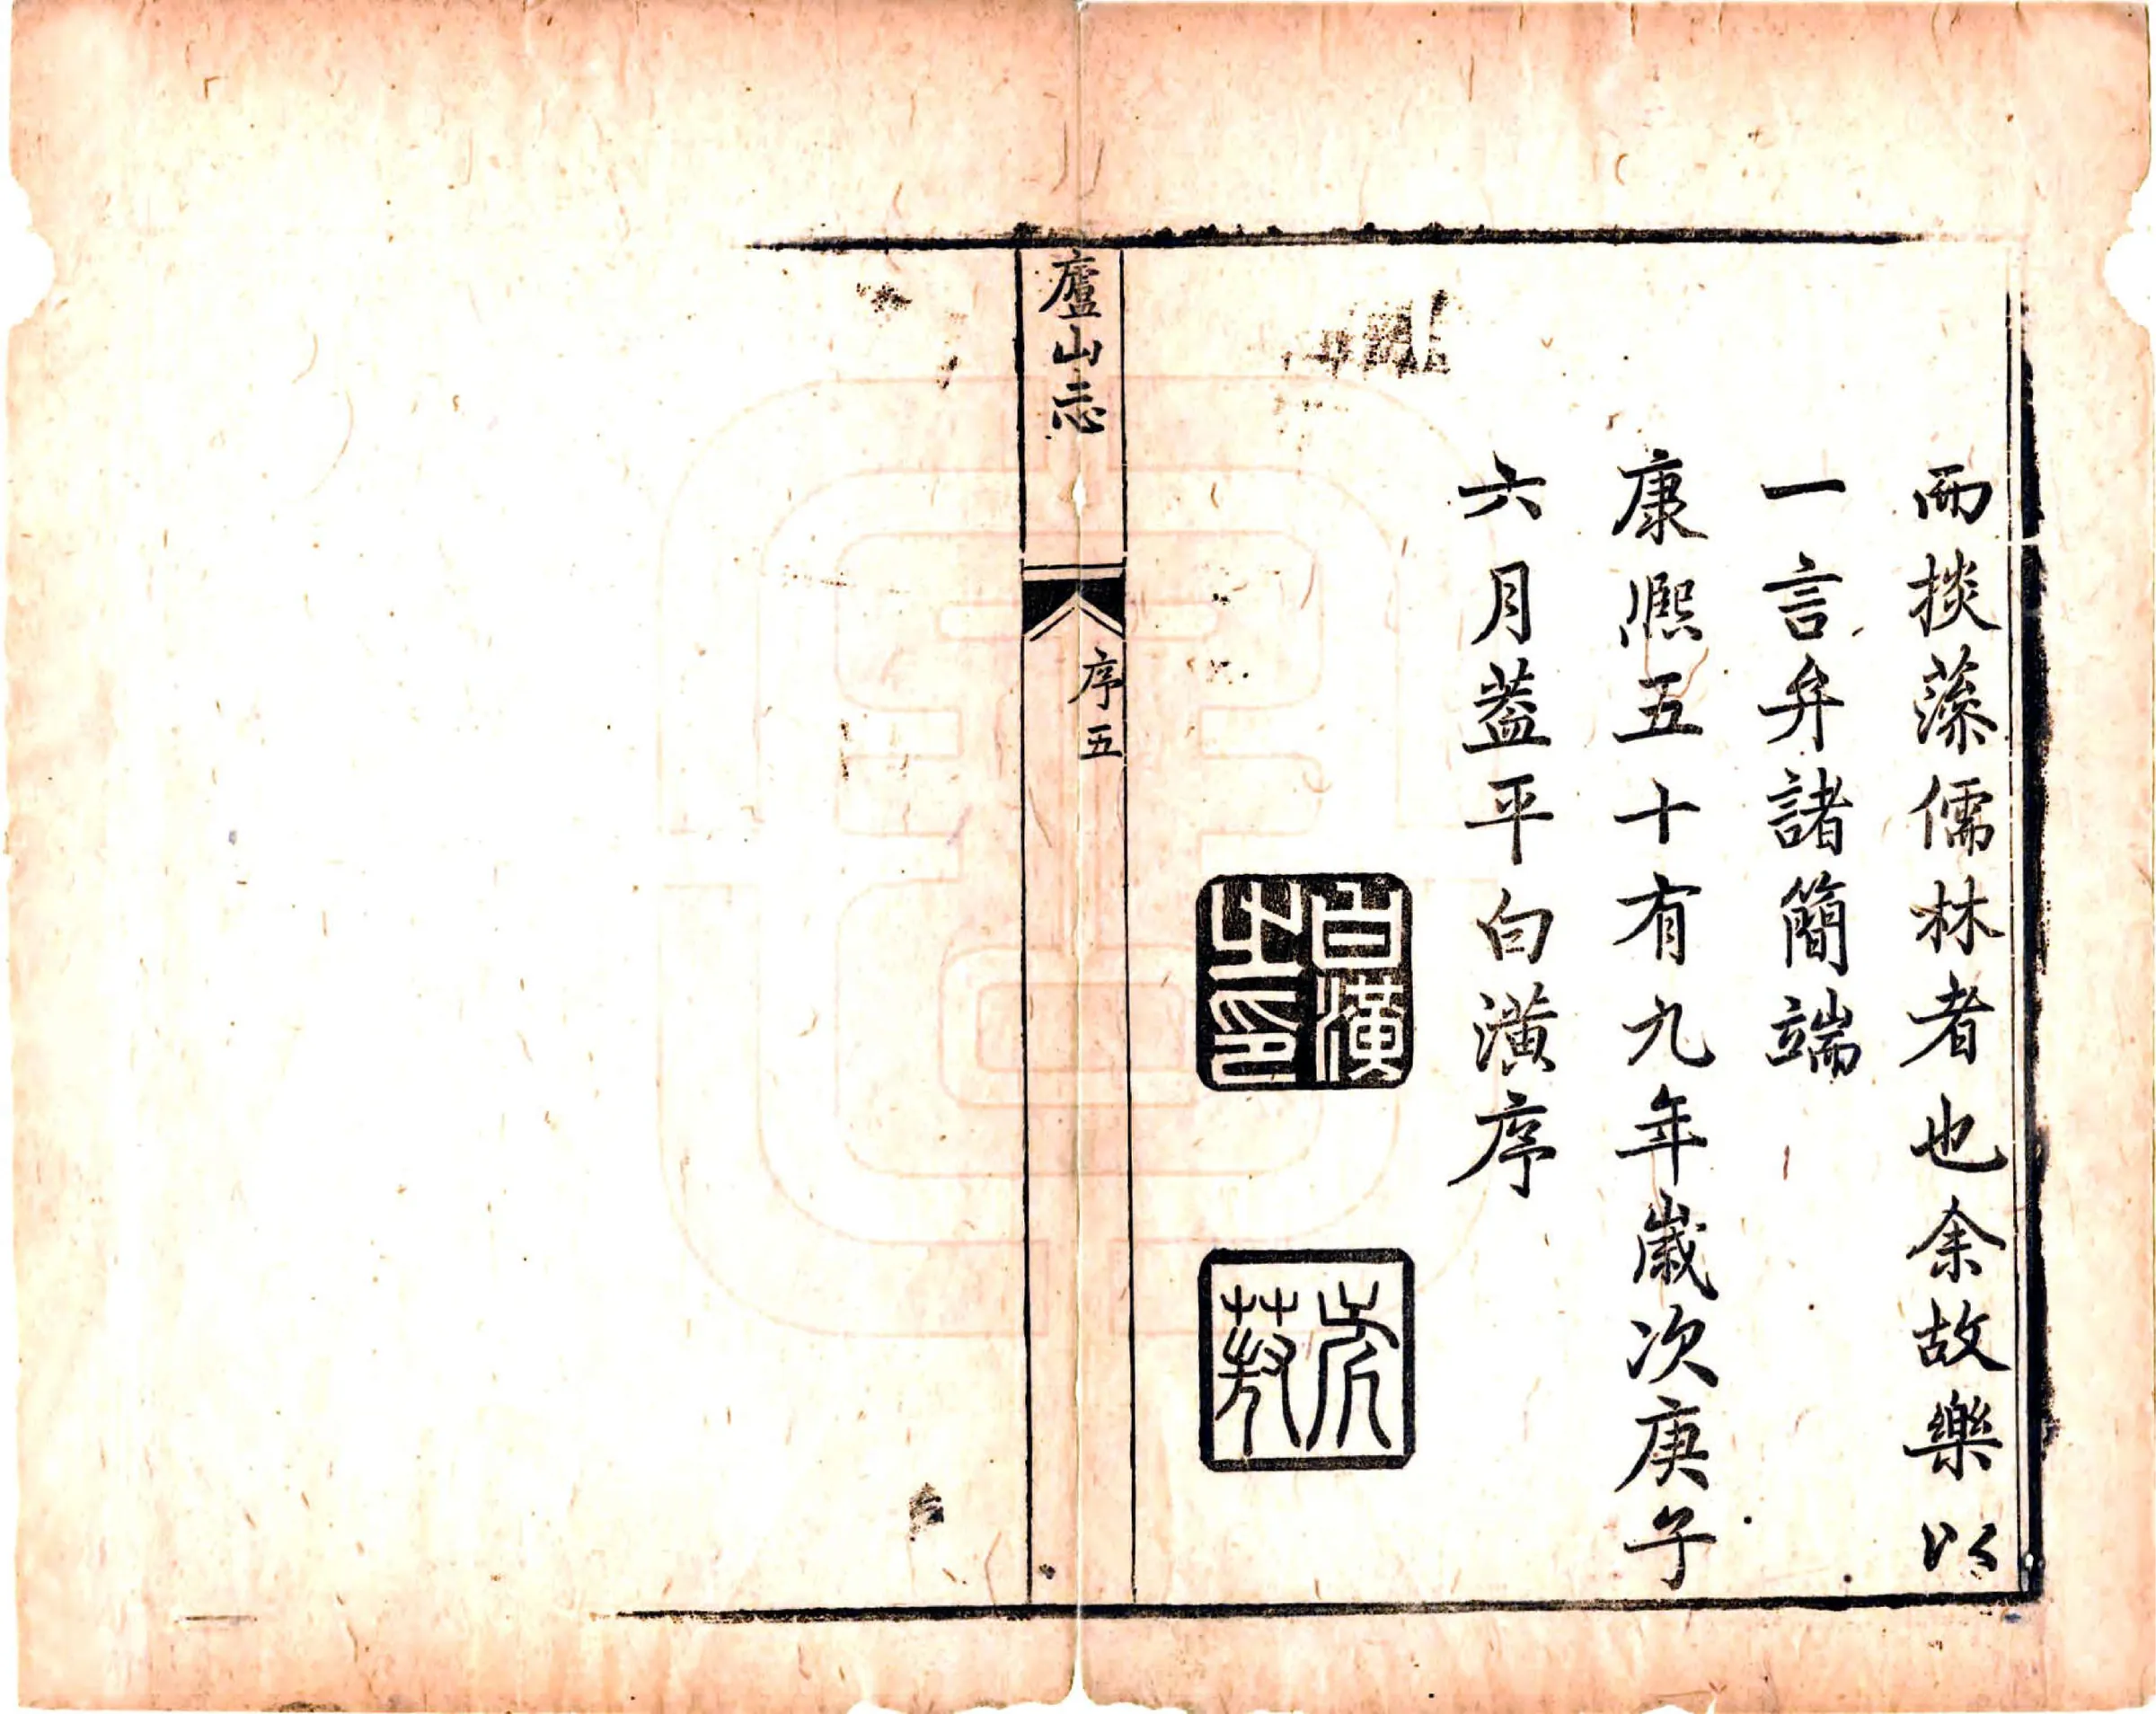 而掞藻儒林者也余故樂以
一言弁諸簡端
康熙五十有九年歲次庚子
六月蓋平白潢序
白潢之印
廬山志
序五